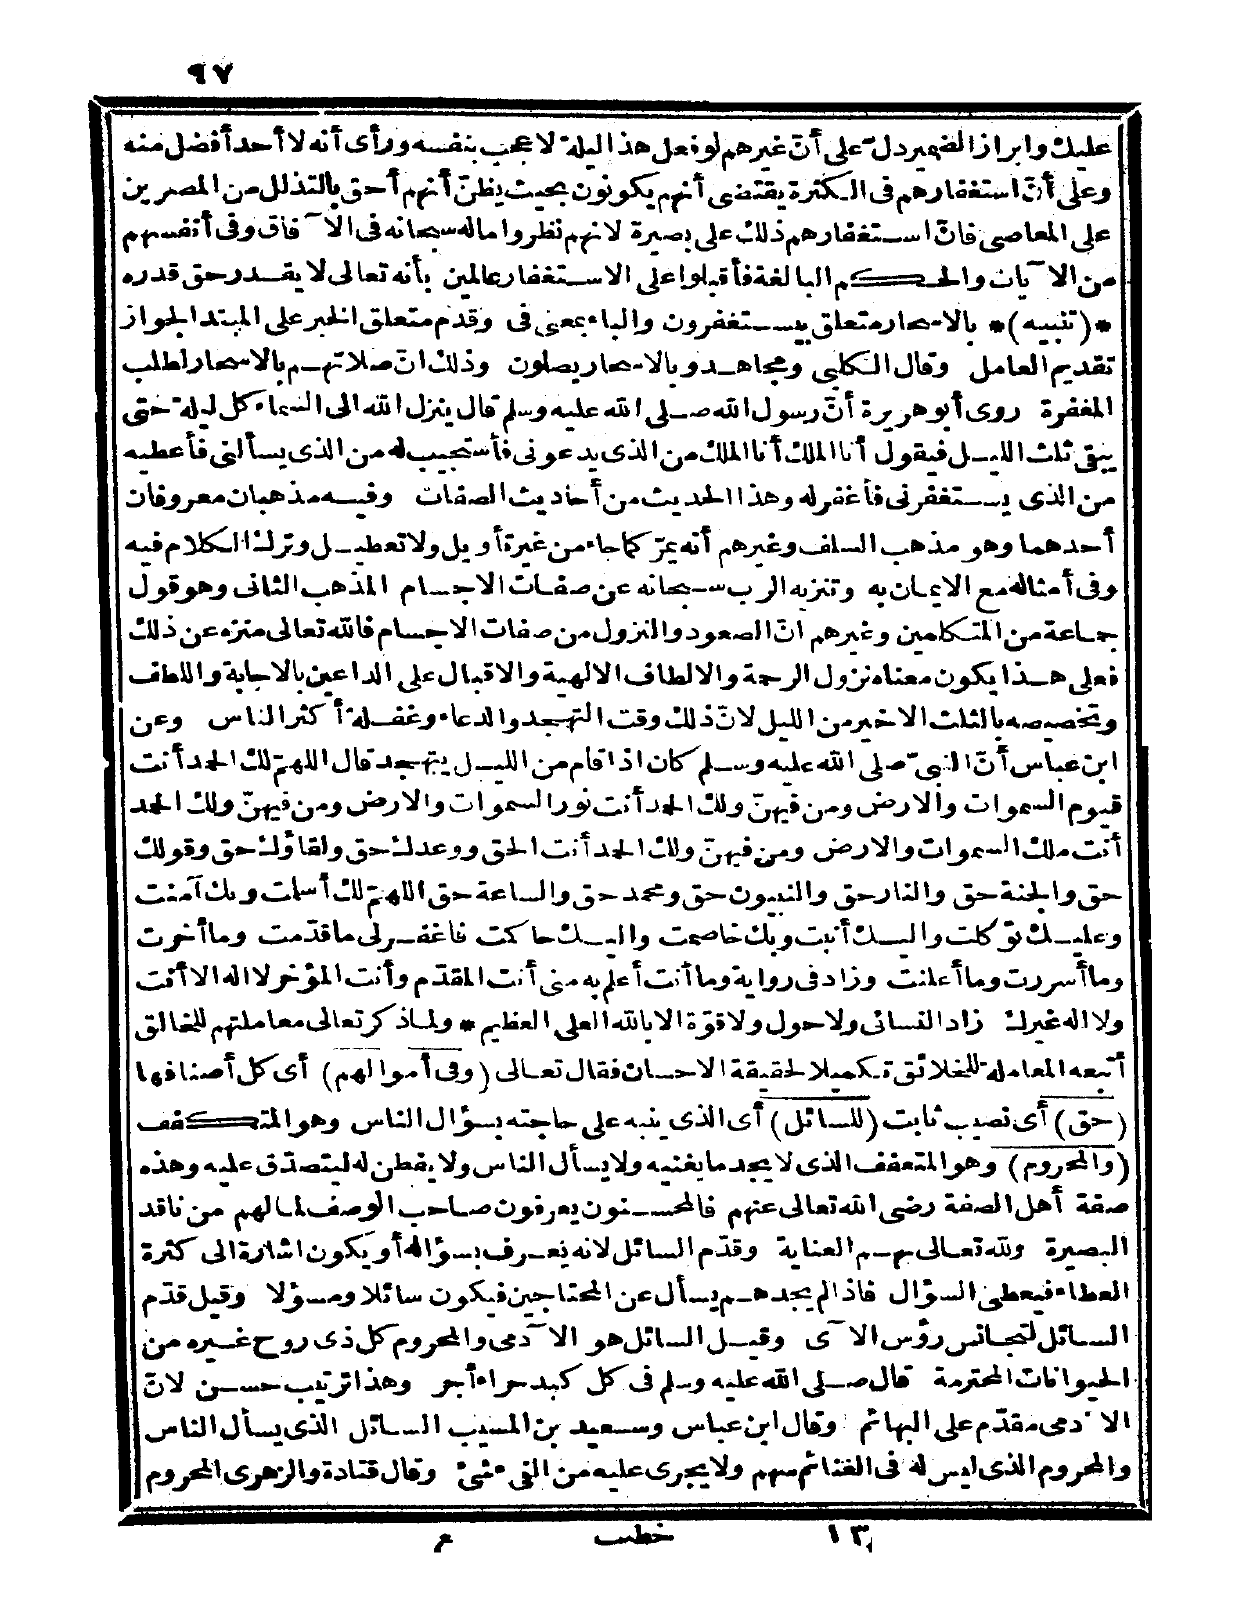 ٩٧
عليك وابراز الضمير دل على أنّ غيرهم لو فعل هذا ليلة لا عجب بنفسه ورأى أنه لا أحد أفضل منه
وعلى أنّ استغفارهم فى الكثرة يقتضى أنهم يكونون بحيث يظنّ أنهم أحق بالتذلل من المصرين
على المعاصى فانّ استغفارهم ذلك على بصيرة لانهم نظروا ماله سبحانه فى الآفاق وفى أنفسهم
من الآيات والحكم البالغة فأقبلوا على الاستغفار عالمين بأنه تعالى لا يقدر حق قدره
*(تنبيه)* بالاسحار متعلق بيستغفرون والباء بمعنى فى وقدم متعلق الخبر على المبتدا لجواز
تقديم العامل وقال الكلبى ومجاهد وبالاسحار يصلون وذلك انّ صلاتهم بالاسحار لطلب
المغفرة روى أبو هريرة أنّ رسول الله صلى الله عليه وسلم قال ينزل الله الى السماء كل ليلة حتى
يبقى ثلث الليل فيقول أنا الملك أنا الملك من الذى يدعونى فأستجيب له من الذى يسألنى فأعطيه
من الذى يستغفرنى فأغفر له وهذا الحديث من أحاديث الصفات وفيه مذهبان معروفان
أحدهما وهو مذهب السلف وغيرهم أنه يمرّ كما جاء من غير تأويل ولا تعطيل وترك الكلام فيه
وفى أمثاله مع الايمان به وتنزيه الرب سبحانه عن صفات الاجسام المذهب الثانى وهو قول
جماعة من المتكلمين وغيرهم انّ الصعود والنزول من صفات الاجسام فالله تعالى منزه عن ذلك
فعلى هذا يكون معناه نزول الرحمة والالطاف الالهية والاقبال على الداعين بالاجابة واللطف
وتخصيصه بالثلث الاخير من الليل لانّ ذلك وقت التهجد والدعاء وغفلة أكثر الناس وعن
ابن عباس أنّ النبىّ صلى الله عليه وسلم كان اذا قام من الليل يتهجد قال اللهمّ لك الحمد أنت
قيوم السموات والارض ومن فيهنّ ولك الحمد أنت نور السموات والارض ومن فيهنّ ولك الحمد
أنت ملك السموات والارض ومن فيهنّ ولك الحمد أنت الحق ووعدك حق ولقاؤك حق وقولك
حق والجنة حق والنار حق والنبيون حق ومحمد حق والساعة حق اللهمّ لك أسلمت وبك آمنت
وعليك توكلت واليك أنبت وبك خاصمت واليك حاكمت فاغفر لى ما قدّمت وما أخرت
وما أسررت وما أعلنت وزاد فى رواية وما أنت أعلم به منى أنت المقدّم وأنت المؤخر لا اله الا أنت
ولا اله غيرك زاد النسائى ولا حول ولا قوّة الا بالله العلى العظيم * ولما ذكر تعالى معاملتهم للخالق
أتبعه المعاملة للخلائق تكميلا لحقيقة الاحسان فقال تعالى (وفى أموالهم) أى كل أصنافها
(حق) أى نصيب ثابت (للسائل) أى الذى ينبه على حاجته بسؤال الناس وهو المتكفف
(والمحروم) وهو المتعفف الذى لا يجد ما يغنيه ولا يسأل الناس ولا يفطن له ليتصدّق عليه وهذه
صفة أهل الصفة رضى الله تعالى عنهم فالمحسنون يعرفون صاحب الوصف لما لهم من ناقد
البصيرة ولله تعالى بهم العناية وقدّم السائل لانه يعرف بسؤاله أو يكون اشارة الى كثرة
العطاء فيعطى السؤال فاذا لم يجدهم يسأل عن المحتاجين فيكون سائلا ومسؤلا وقيل قدّم
السائل لتجانس رؤس الآى وقيل السائل هو الآدمى والمحروم كل ذى روح غيره من
الحيوانات المحترمة قال صلى الله عليه وسلم فى كل كبد حراء أجر وهذا ترتيب حسن لانّ
الآدمى مقدّم على البهائم وقال ابن عباس وسعيد بن المسيب السائل الذى يسأل الناس
والمحروم الذى ليس له فى الغنائم سهم ولا يجرى عليه من الفىء شئ وقال قتادة والزهرى المحروم
١٣ خطيب ع